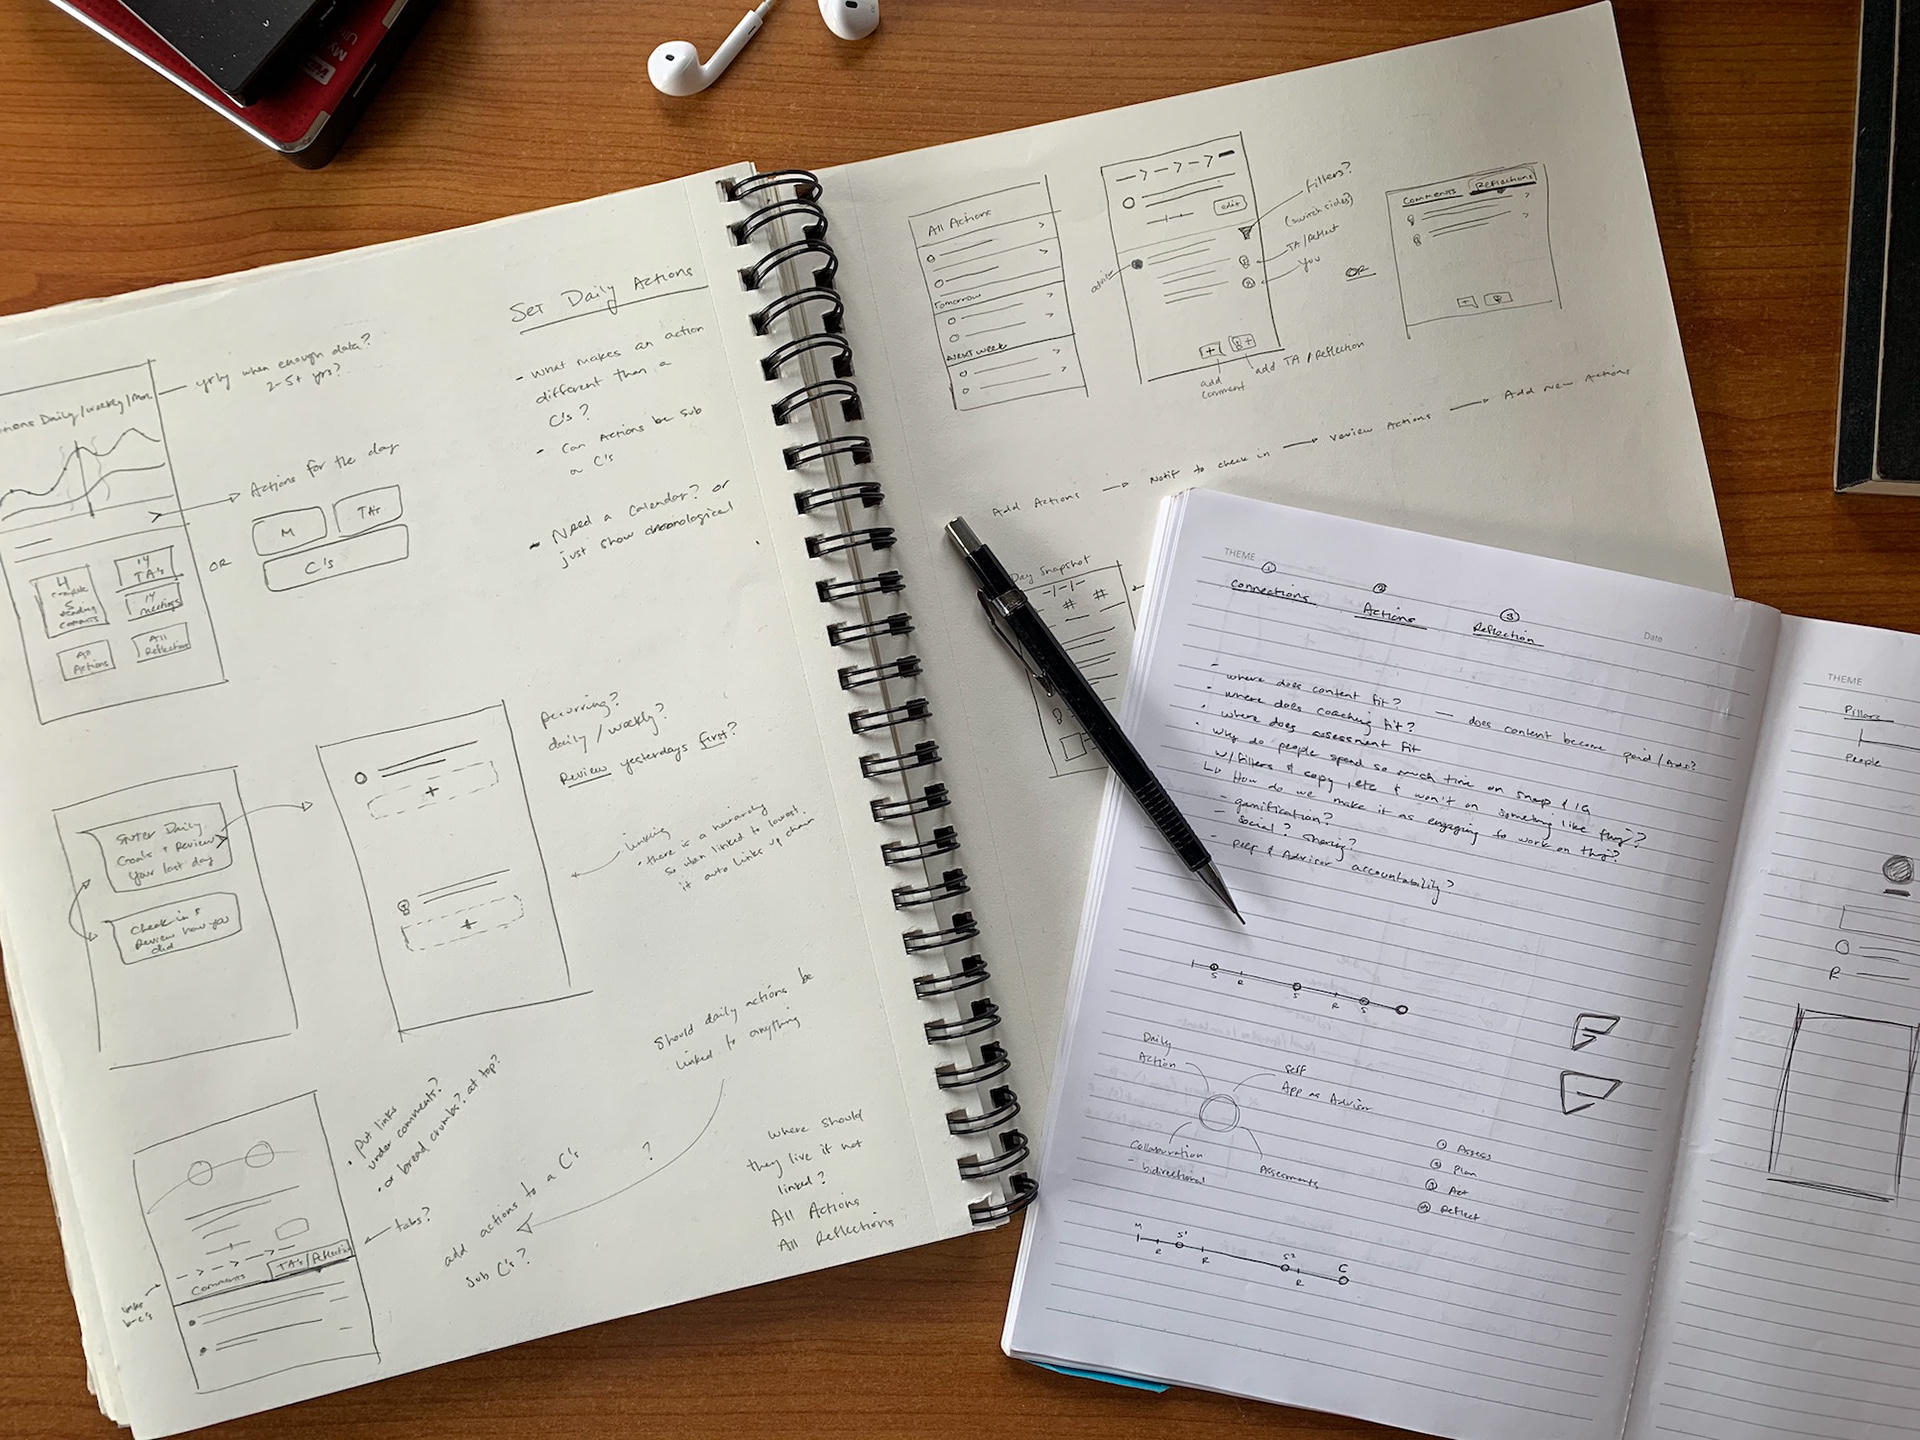 My
Set Daily Actions
- What makes an action
different than a
C's?
- Can Actions be sub
a C's
- Need a Calendar? or
just show chronological
yrly when enough data?
2-5+ yrs?
Daily/weekly/Mon
Actions for the day
M
TAs
C's
OR
4
complete
5
pending
14
TA's
14
meetings
All
Actions
All
Reflections
recurring?
daily/weekly?
Review yesterdays first?
Enter Daily
Goals + Review
your last day
Check-in &
Review how you
did
linking
• there is a hierarchy
so when linked to lowest
it auto links up chain
Should daily actions be
linked to anything
• Put links
under comments?
• or bread crumbs? at top?
tabs?
Comments
TA's/Reflection
add actions to a C's
sub C's?
?
where should
they live if not
linked?
All Actions
All Reflections
All Actions
Tomorrow
Next week
edit
Filters?
(switch sides)
TA/Reflect
You
advisor
add
comment
add TA/Reflection
OR
Comments
Reflections
Add Actions
Notif to check in
Review Actions
Add New Actions
Day Snapshot
-/-/-
# #
THEME
Date
1
Connections
2
Actions
3
Reflection
- where does content fit? — does content become paid/Ads?
• where does coaching fit?
• where does assessment fit
• why do people spend so much time on snap & IG
w/filters & copy, etc & won't on something like this?
How do we make it as engaging to work on this?
- gamification?
- social? sharing?
- peer & Advisor accountability?
S
R
S
R
S
Daily
Action
self
App as Advisor
Collaboration
- bidirectional
Assessments
1 Assess
2 Plan
3 Act
4 Reflect
M
R
S1
R
S2
R
C
THEME
Pillars
People
R